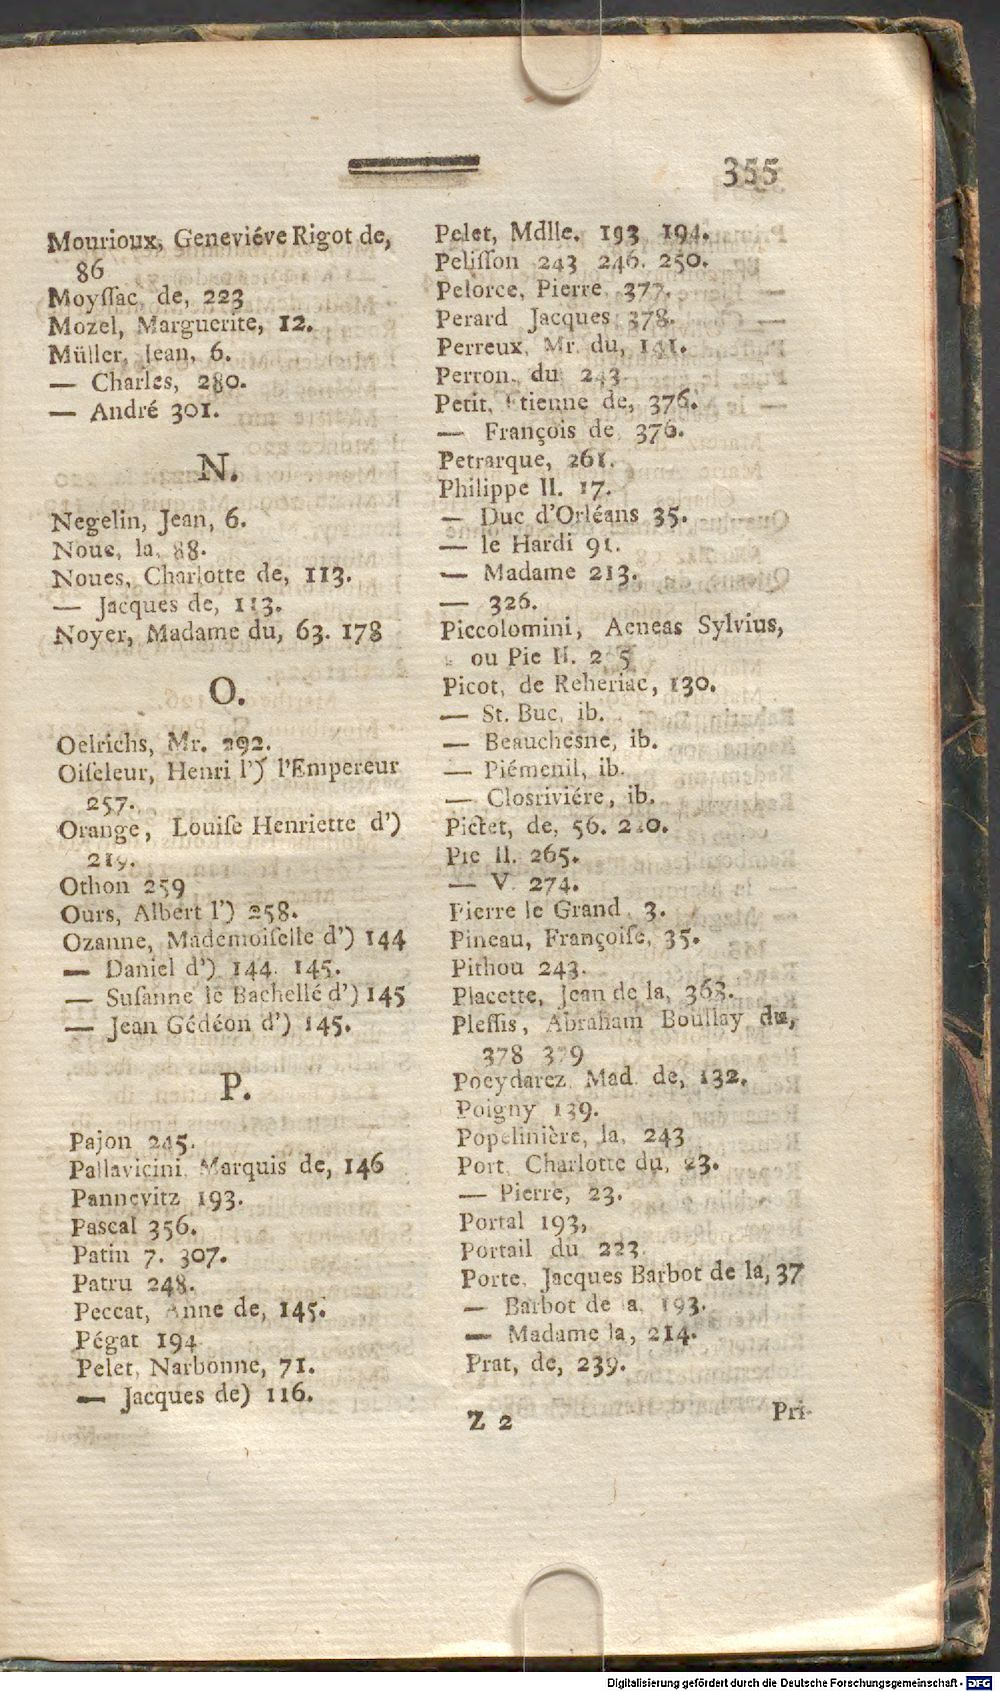 355
Mourioux, Geneviéve Rigot de,
86
Moyſſac, de, 223
Mozel, Marguerite, 12.
Müller, Jean, 6.
— Charles, 280.
— André 301.
N.
Negelin, Jean, 6.
Noue, la, 88.
Noues, Charlotte de, 113.
— Jacques de, 113.
Noyer, Madame du, 63. 178
O.
Oelrichs, Mr. 292.
Oiſeleur, Henri l') l'Empereur
257.
Orange, Louiſe Henriette d')
219.
Othon 259
Ours, Albert l') 258.
Ozanne, Mademoiſelle d') 144
— Daniel d') 144. 145.
— Suſanne le Bachellé d') 145
— Jean Gédéon d') 145.
P.
Pajon 245.
Pallavicini, Marquis de, 146
Pannevitz 193.
Pascal 356.
Patin 7. 307.
Patru 248.
Peccat, Anne de, 145.
Pégat 194
Pelet, Narbonne, 71.
— Jacques de) 116.
Pelet, Mdlle. 193 194.
Peliſſon 243 246. 250.
Pelorce, Pierre, 377.
Perard Jacques, 378.
Perreux, Mr. du, 141.
Perron, du, 243
Petit, Etienne de, 376.
— François de, 376.
Petrarque, 261.
Philippe II. 17.
— Duc d'Orléans 35.
— le Hardi 91.
— Madame 213.
— 326.
Piccolomini, Aeneas Sylvius,
ou Pie II.
Picot, de Reheriac, 130.
— St. Buc, ib.
— Beauchesne, ib.
— Piémenil, ib.
— Closriviére, ib.
Pictet, de, 56.
Pie II. 265.
— V. 274.
Pierre le Grand, 3.
Pineau, Françoiſe, 35.
Pithou 243.
Placette, Jean de la, 368.
Pleſſis, Abraham Boullay du,
378 379
Poeydarez, Mad. de, 132.
Poigny 139.
Popelinière, la, 243
Port, Charlotte du, 23.
— Pierre, 23.
Portal 193,
Portail du 223.
Porte, Jacques Barbot de la, 37
— Barbot de la, 193.
— Madame la, 214.
Prat, de, 239.
Z 2
Pri-
Digitalisierung gefördert durch die Deutsche Forschungsgemeinschaft - DFG